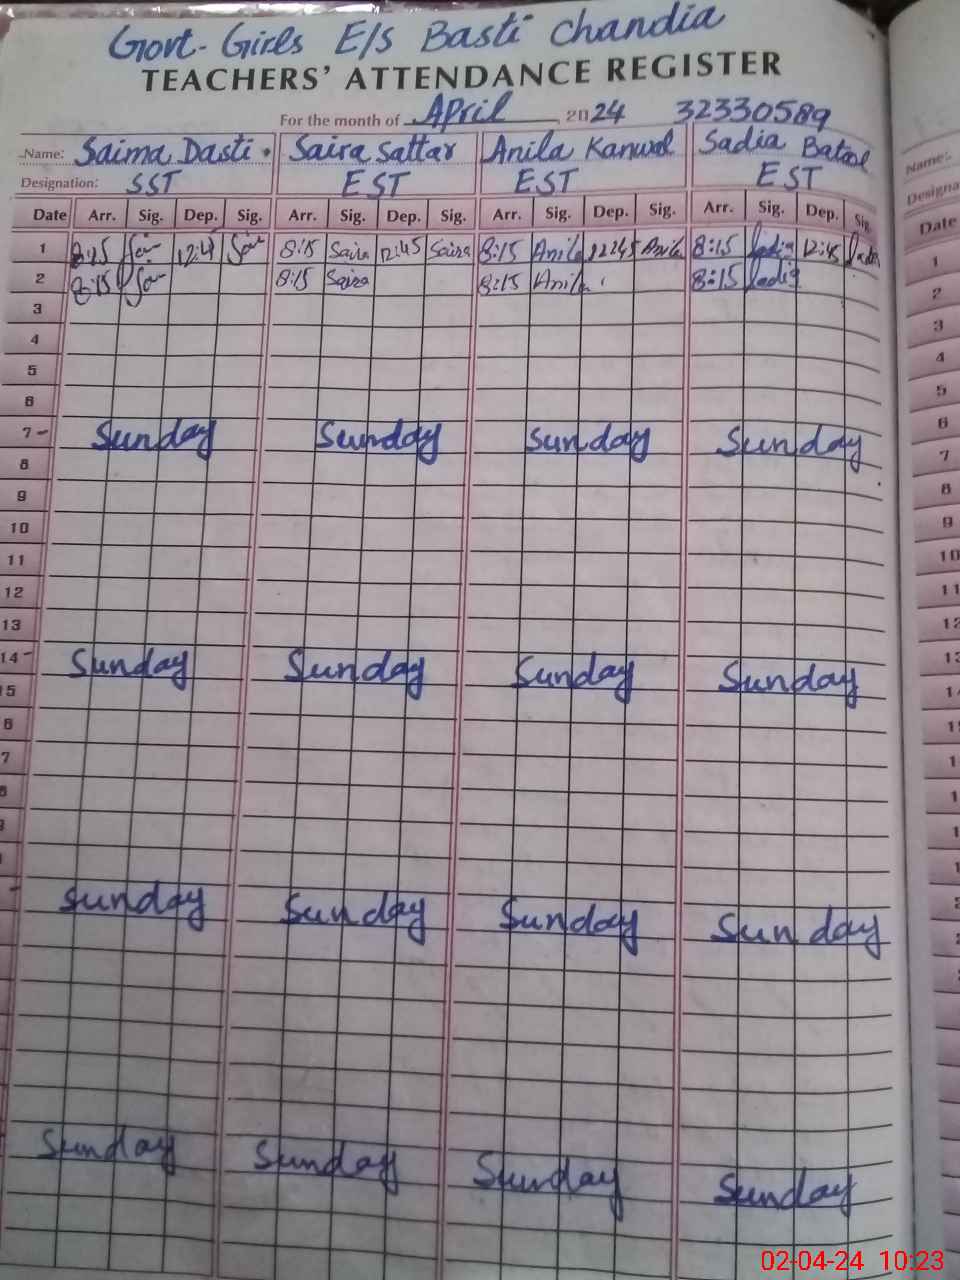 Govt- Girls E/S Basti Chandia
TEACHERS' ATTENDANCE REGISTER
For the month of April, 2024 32330589
Name: Saima Dasti. Saira Sattar Anila Kanwal Sadia Batool Name:
Designation: SST EST EST EST
Date Arr. Sig. Dep. Sig. Arr. Sig. Dep. Sig. Arr. Sig. Dep. Sig. Arr. Sig. Dep. Sig. Date
1 8:15 12:45 8:15 Saira 12:45 Saira 8:15 Anila 12:45 Anila 8:15 Sadia 12:45 Sadia 1
2 8:15 8:15 Saira 8:15 Anila 8:15 Sadia 2
3 3
4 4
5 5
6 6
7 - Sunday Sunday Sunday Sunday 7
8 8
9 9
10 10
11 11
12
13
14 - Sunday Sunday Sunday Sunday
Sunday Sunday Sunday Sunday
Sunday Sunday Sunday Sunday
02-04-24 10:23